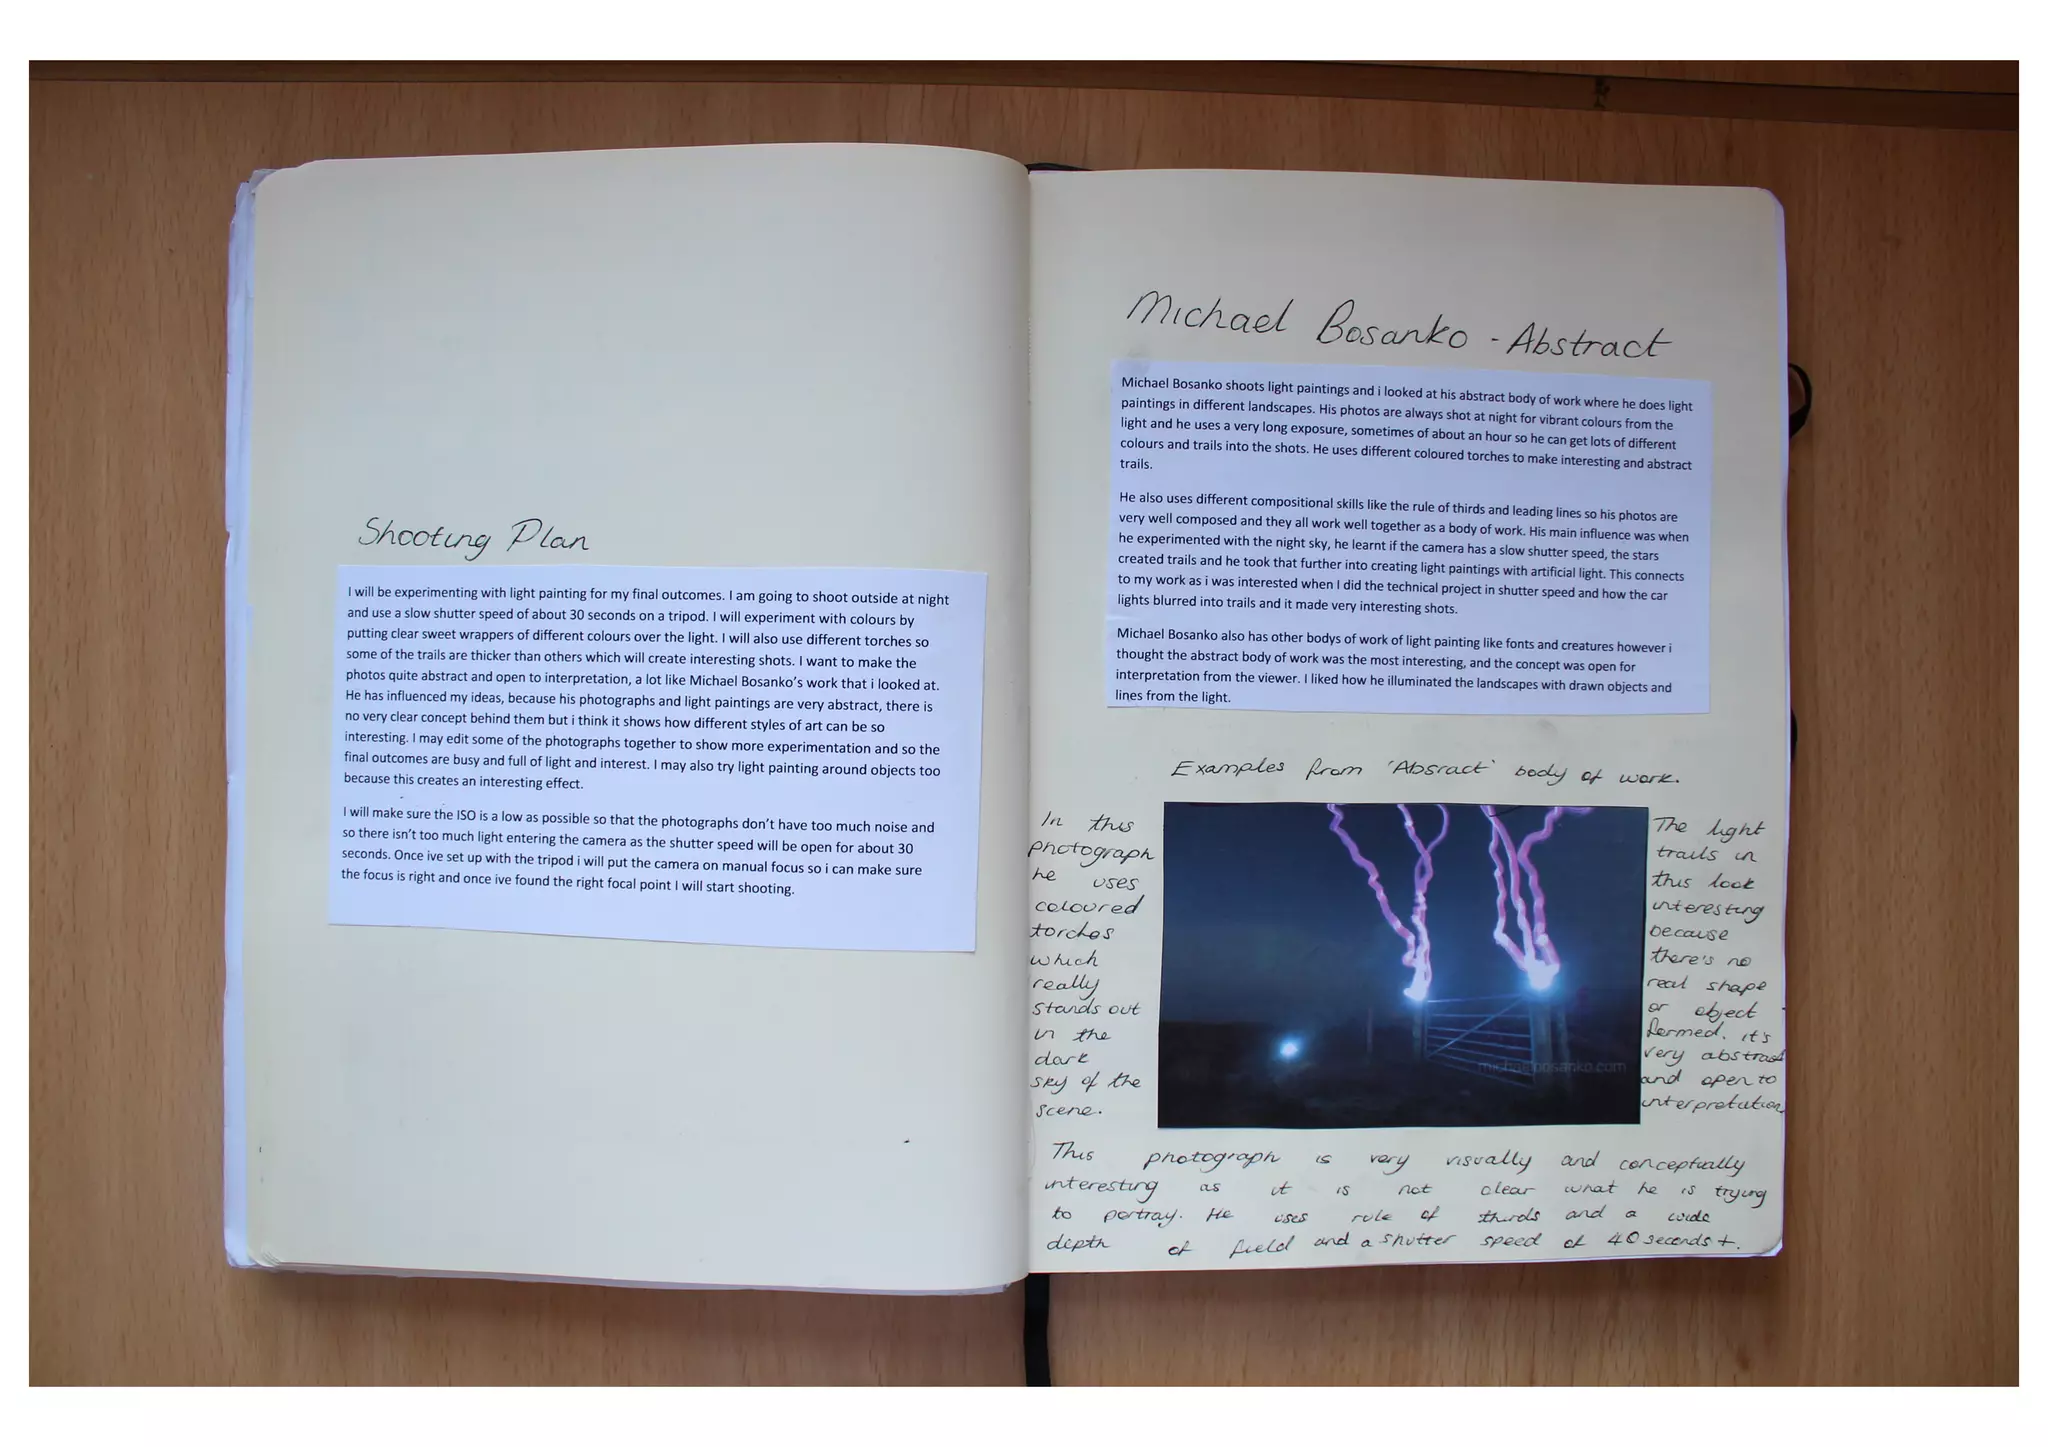 Shooting Plan
I will be experimenting with light painting for my final outcomes. I am going to shoot outside at night
and use a slow shutter speed of about 30 seconds on a tripod. I will experiment with colours by
putting clear sweet wrappers of different colours over the light. I will also use different torches so
some of the trails are thicker than others which will create interesting shots. I want to make the
photos quite abstract and open to interpretation, a lot like Michael Bosanko's work that i looked at.
He has influenced my ideas, because his photographs and light paintings are very abstract, there is
no very clear concept behind them but i think it shows how different styles of art can be so
interesting. I may edit some of the photographs together to show more experimentation and so the
final outcomes are busy and full of light and interest. I may also try light painting around objects too
because this creates an interesting effect.
I will make sure the ISO is a low as possible so that the photographs don't have too much noise and
so there isn't too much light entering the camera as the shutter speed will be open for about 30
seconds. Once ive set up with the tripod i will put the camera on manual focus so i can make sure
the focus is right and once ive found the right focal point I will start shooting.
Michael Bosanko - Abstract
Michael Bosanko shoots light paintings and i looked at his abstract body of work where he does light
paintings in different landscapes. His photos are always shot at night for vibrant colours from the
light and he uses a very long exposure, sometimes of about an hour so he can get lots of different
colours and trails into the shots. He uses different coloured torches to make interesting and abstract
trails.
He also uses different compositional skills like the rule of thirds and leading lines so his photos are
very well composed and they all work well together as a body of work. His main influence was when
he experimented with the night sky, he learnt if the camera has a slow shutter speed, the stars
created trails and he took that further into creating light paintings with artificial light. This connects
to my work as i was interested when I did the technical project in shutter speed and how the car
lights blurred into trails and it made very interesting shots.
Michael Bosanko also has other bodys of work of light painting like fonts and creatures however i
thought the abstract body of work was the most interesting, and the concept was open for
interpretation from the viewer. I liked how he illuminated the landscapes with drawn objects and
lines from the light.
Examples from 'Absract' body of work.
In this
photograph
he uses
coloured
torches
which
really
stands out
in the
dark
sky of the
scene.
michaelbosanko.com
The light
trails in
this look
interesting
because
there's no
real shape
or object
formed. it's
very abstract
and open to
interpretation
This photograph is very visually and conceptually
interesting as it is not clear what he is trying
to portray. He uses rule of thirds and a wide
depth of field and a shutter speed of 40 seconds +.